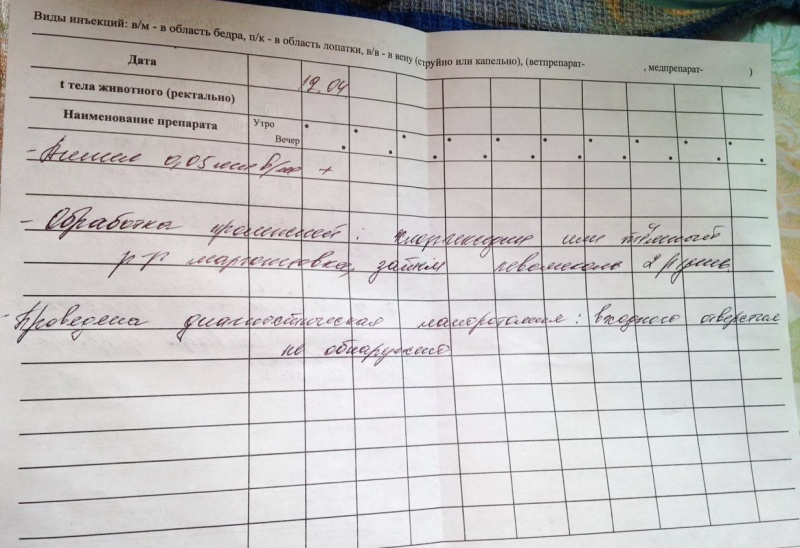 Виды инъекций: в/м - в область бедра, п/к - в область лопатки, в/в - в вену (струйно или капельно), (ветпрепарат- , медпрепарат- )
Дата 19.04
t тела животного (ректально)
Наименование препарата Утро Вечер
0,05 мл в/м +
- Обработка : хлоргексидин или тёмный
р-р марганцовки, затем левомеколь 2 р/день
- Проведена диагностическая лапоротомия: входного отверстия
не обнаружено